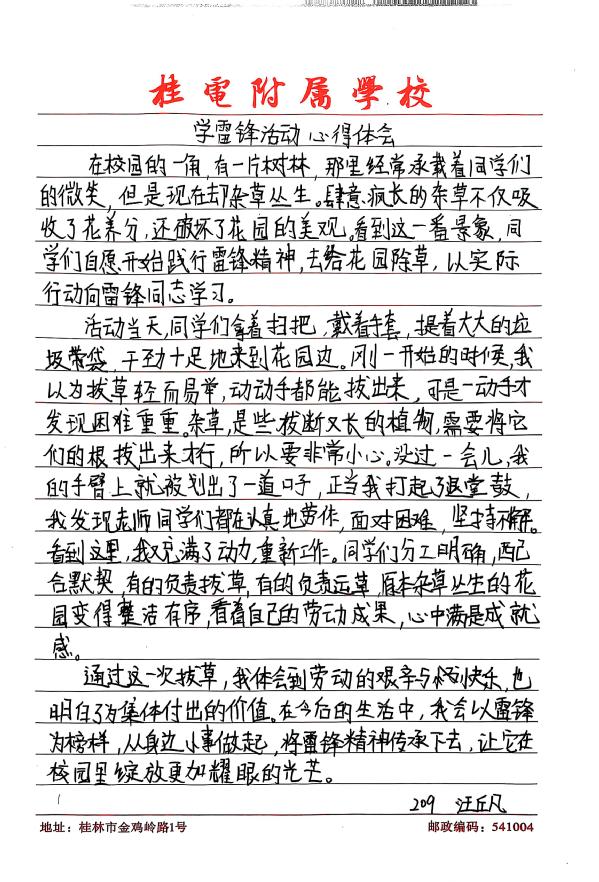 桂電附属學校
学雷锋活动心得体会
在校园的一角,有一片树林,那里经常承载着同学们
的微笑,但是现在却杂草丛生。肆意疯长的杂草不仅吸
收了花养分,还破坏了花园的美观。看到这一番景象,同
学们自愿开始践行雷锋精神,去给花园除草,以实际
行动向雷锋同志学习。
活动当天,同学们拿着扫把,戴着手套,提着大大的垃
圾带袋,干劲十足地来到花园边。刚一开始的时候,我
以为拔草轻而易举,动动手都能拔出来,可是一动手才
发现困难重重。杂草,是些拔断又长的植物,需要将它
们的根拔出来才行,所以要非常小心。没过一会儿,我
的手臂上就被划出了一道口子,正当我打起了退堂鼓,
我发现老师同学们都在认真地劳作,面对困难,坚持不懈。
看到这里,我又充满了动力,重新工作。同学们分工明确,配
合默契,有的负责拔草,有的负责运草,原本杂草丛生的花
园变得整洁有序,看着自己的劳动成果,心中满是成就
感。
通过这一次拔草,我体会到劳动的艰辛与快乐,也
明白了为集体付出的价值。在今后的生活中,我会以雷锋
为榜样,从身边小事做起,将雷锋精神传承下去,让它在
校园里绽放更加耀眼的光芒。
209 汪丘凡
地址:桂林市金鸡岭路1号 邮政编码:541004